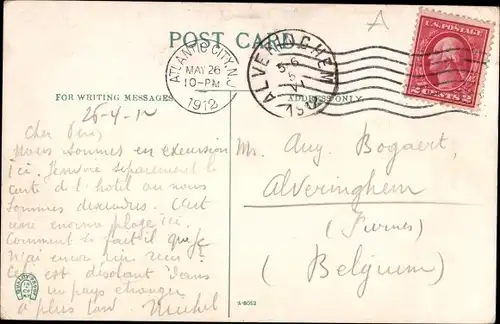 A
U.S. POSTAGE
POST CARD
2 CENTS 2
ATLANTIC CITY, N.J.
MAY 26
10-PM
1912
ALVERINGHEM
FOR WRITING MESSAGES
ADDRESS ONLY
Cher
Nous sommes en excursion
ici. J'envoie separement la
carte de l'hôtel ou nous
sommes descendus. C'est
une enorme plage ici.
Comment se fait il que je
n'ai encore rien recu
C'est desolant dans
un pays etranger
A plus tard. Michel
Mr. Aug. Bogaert,
Alveringhem
(Furnes)
(Belgium)
A-8062